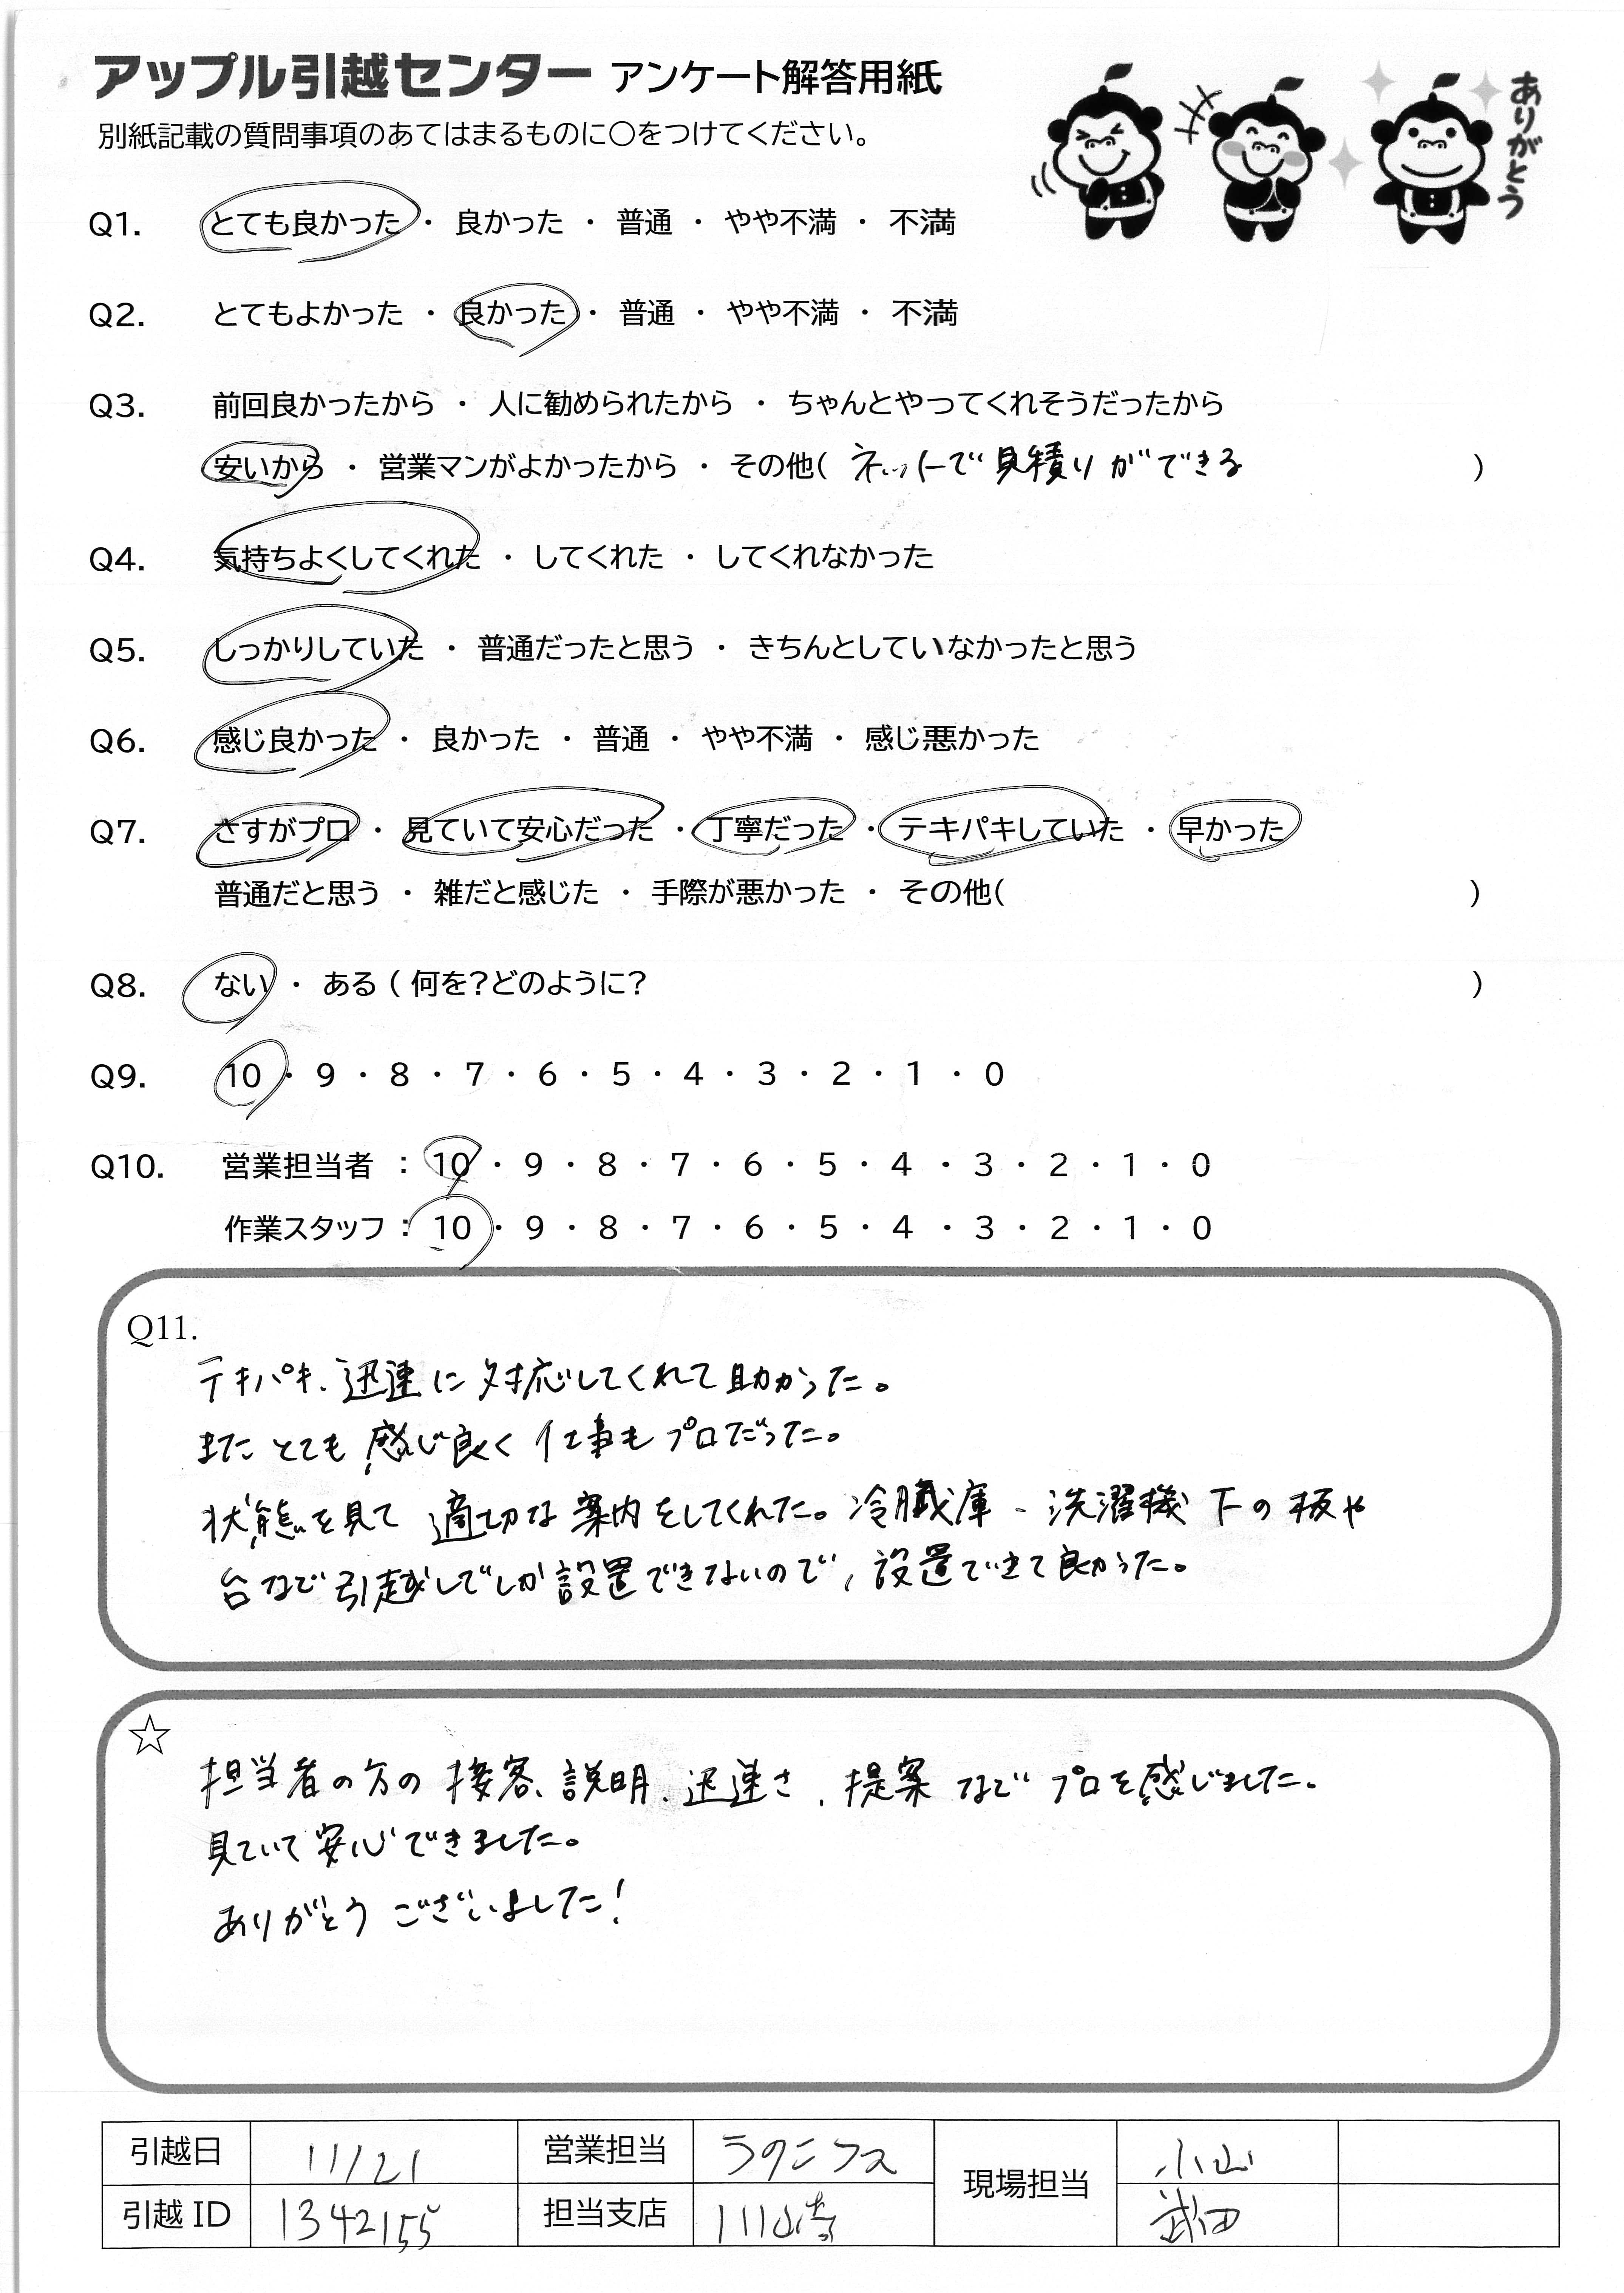 アップル引越センター アンケート解答用紙
別紙記載の質問事項のあてはまるものに○をつけてください。
ありがとう
Q1. とても良かった ・ 良かった ・ 普通 ・ やや不満 ・ 不満
Q2. とてもよかった ・ 良かった ・ 普通 ・ やや不満 ・ 不満
Q3. 前回良かったから ・ 人に勧められたから ・ ちゃんとやってくれそうだったから
安いから ・ 営業マンがよかったから ・ その他( ネットで見積りができる )
Q4. 気持ちよくしてくれた ・ してくれた ・ してくれなかった
Q5. しっかりしていた ・ 普通だったと思う ・ きちんとしていなかったと思う
Q6. 感じ良かった ・ 良かった ・ 普通 ・ やや不満 ・ 感じ悪かった
Q7. さすがプロ ・ 見ていて安心だった ・ 丁寧だった ・ テキパキしていた ・ 早かった
普通だと思う ・ 雑だと感じた ・ 手際が悪かった ・ その他( )
Q8. ない ・ ある ( 何を?どのように? )
Q9. 10 ・ 9 ・ 8 ・ 7 ・ 6 ・ 5 ・ 4 ・ 3 ・ 2 ・ 1 ・ 0
Q10. 営業担当者 : 10 ・ 9 ・ 8 ・ 7 ・ 6 ・ 5 ・ 4 ・ 3 ・ 2 ・ 1 ・ 0
作業スタッフ : 10 ・ 9 ・ 8 ・ 7 ・ 6 ・ 5 ・ 4 ・ 3 ・ 2 ・ 1 ・ 0
Q11.
テキパキ、迅速に対応してくれて助かった。
またとても感じ良く仕事もプロだった。
状態を見て適切な案内をしてくれた。冷蔵庫、洗濯機下の板や
台など引越しでしか設置できないので、設置できて良かった。
☆
担当者の方の接客、説明、迅速さ、提案などプロを感じました。
見ていて安心できました。
ありがとうございました!
引越日 11/21 営業担当 現場担当 小山
引越ID 1342155 担当支店 川崎 武田